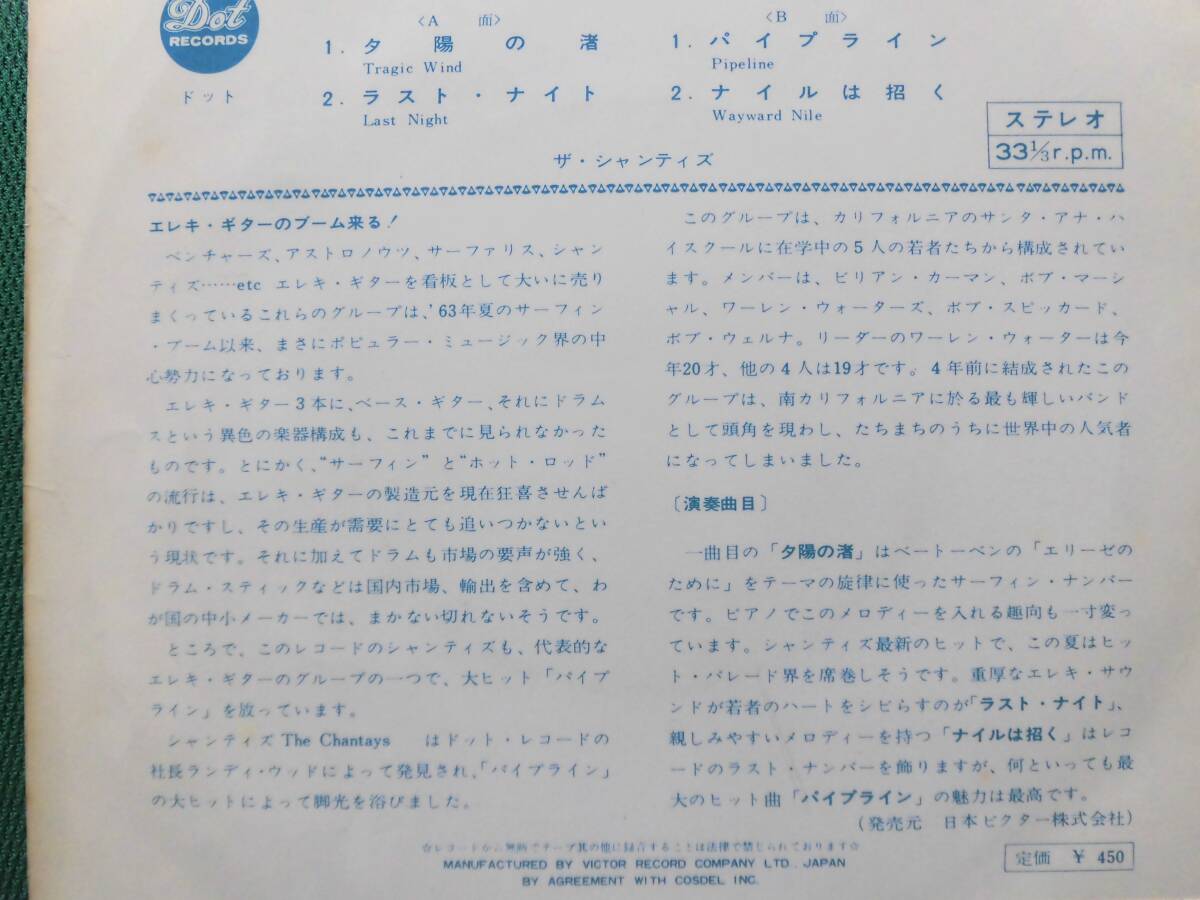 Dot
RECORDS
ドット
〈A 面〉
1. 夕陽の渚
Tragic Wind
2. ラスト・ナイト
Last Night
〈B 面〉
1. パイプライン
Pipeline
2. ナイルは招く
Wayward Nile
ステレオ
33⅓r.p.m.
ザ・シャンティズ
エレキ・ギターのブーム来る!
ベンチャーズ、アストロノウツ、サーファリス、シャン
ティズ……etc エレキ・ギターを看板として大いに売り
まくっているこれらのグループは、'63年夏のサーフィン
・ブーム以来、まさにポピュラー・ミュージック界の中
心勢力になっております。
エレキ・ギター3本に、ベース・ギター、それにドラム
スという異色の楽器構成も、これまでに見られなかった
ものです。とにかく、“サーフィン”と“ホット・ロッド”
の流行は、エレキ・ギターの製造元を現在狂喜させんば
かりですし、その生産が需要にとても追いつかないとい
う現状です。それに加えてドラムも市場の要声が強く、
ドラム・スティックなどは国内市場、輸出を含めて、わ
が国の中小メーカーでは、まかない切れないそうです。
ところで、このレコードのシャンティズも、代表的な
エレキ・ギターのグループの一つで、大ヒット「パイプ
ライン」を放っています。
シャンティズ The Chantays はドット・レコードの
社長ランディ・ウッドによって発見され、「パイプライン」
の大ヒットによって脚光を浴びました。
このグループは、カリフォルニアのサンタ・アナ・ハ
イスクールに在学中の5人の若者たちから構成されてい
ます。メンバーは、ビリアン・カーマン、ボブ・マーシ
ャル、ワーレン・ウォーターズ、ボブ・スピッカード、
ボブ・ウェルナ。リーダーのワーレン・ウォーターは今
年20才、他の4人は19才です。4年前に結成されたこの
グループは、南カリフォルニアに於る最も輝しいバンド
として頭角を現わし、たちまちのうちに世界中の人気者
になってしまいました。
〔演奏曲目〕
一曲目の「夕陽の渚」はベートーベンの「エリーゼの
ために」をテーマの旋律に使ったサーフィン・ナンバー
です。ピアノでこのメロディーを入れる趣向も一寸変っ
ています。シャンティズ最新のヒットで、この夏はヒッ
ト・パレード界を席巻しそうです。重厚なエレキ・サウ
ンドが若者のハートをシビらすのが「ラスト・ナイト」、
親しみやすいメロディーを持つ「ナイルは招く」はレコ
ードのラスト・ナンバーを飾りますが、何といっても最
大のヒット曲「パイプライン」の魅力は最高です。
(発売元 日本ビクター株式会社)
☆レコードから無断でテープ其の他に録音することは法律で禁じられております☆
MANUFACTURED BY VICTOR RECORD COMPANY LTD. JAPAN
BY AGREEMENT WITH COSDEL INC.
定価 ¥ 450